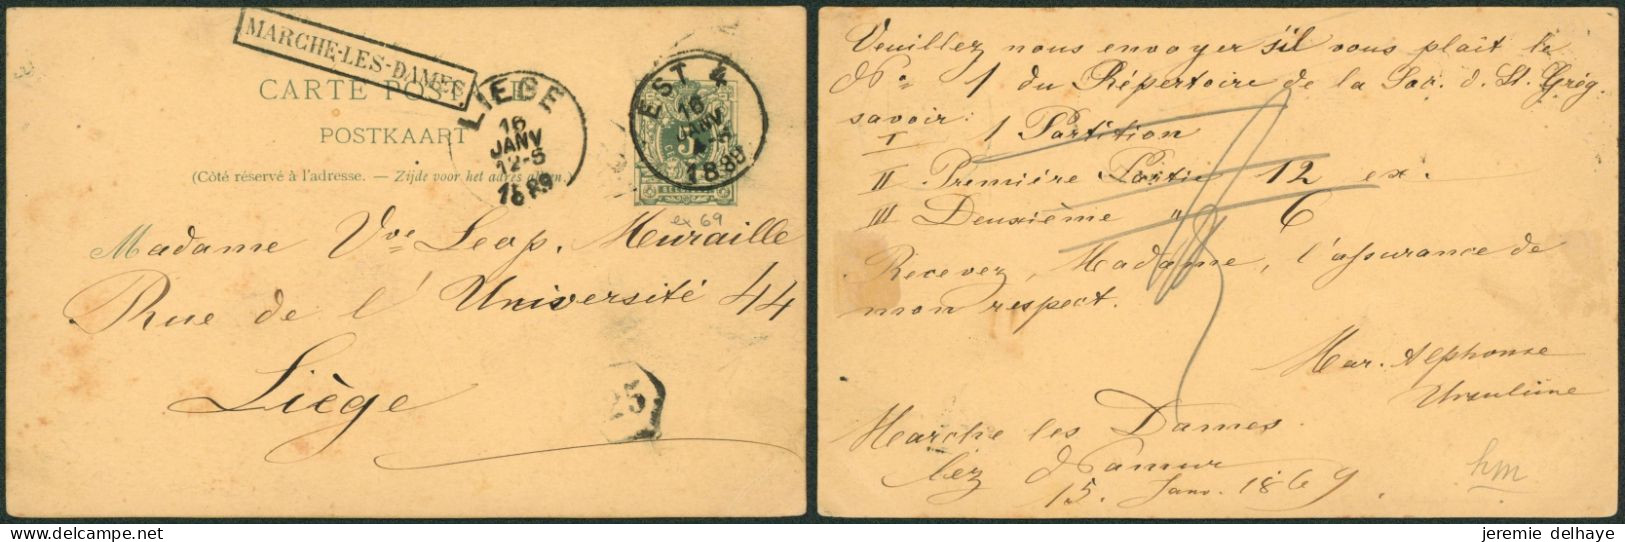 MARCHE-LES-DAMES
CARTE POST
POSTKAART
(Côté réservé à l'adresse. — Zijde voor het adres
LIEGE
16
JANV
12-S
1889
EST 4
16
JANV
1889
ex 69
Madame Vve Leop. Muraille
Rue de l'Université 44
Liège
25
Veuillez nous envoyer s'il vous plait le
No 1 du Répertoire de la Soc. d. St. Grég.
savoir:
I 1 Partition
II Première Partie 12 ex.
III Deuxième " 6
Recevez, Madame, l'assurance de
mon respect.
Mar. Alphonse
Ursuline
Marche les Dames
lez Namur
15. Janv. 1869.
hm
jeremie delhaye